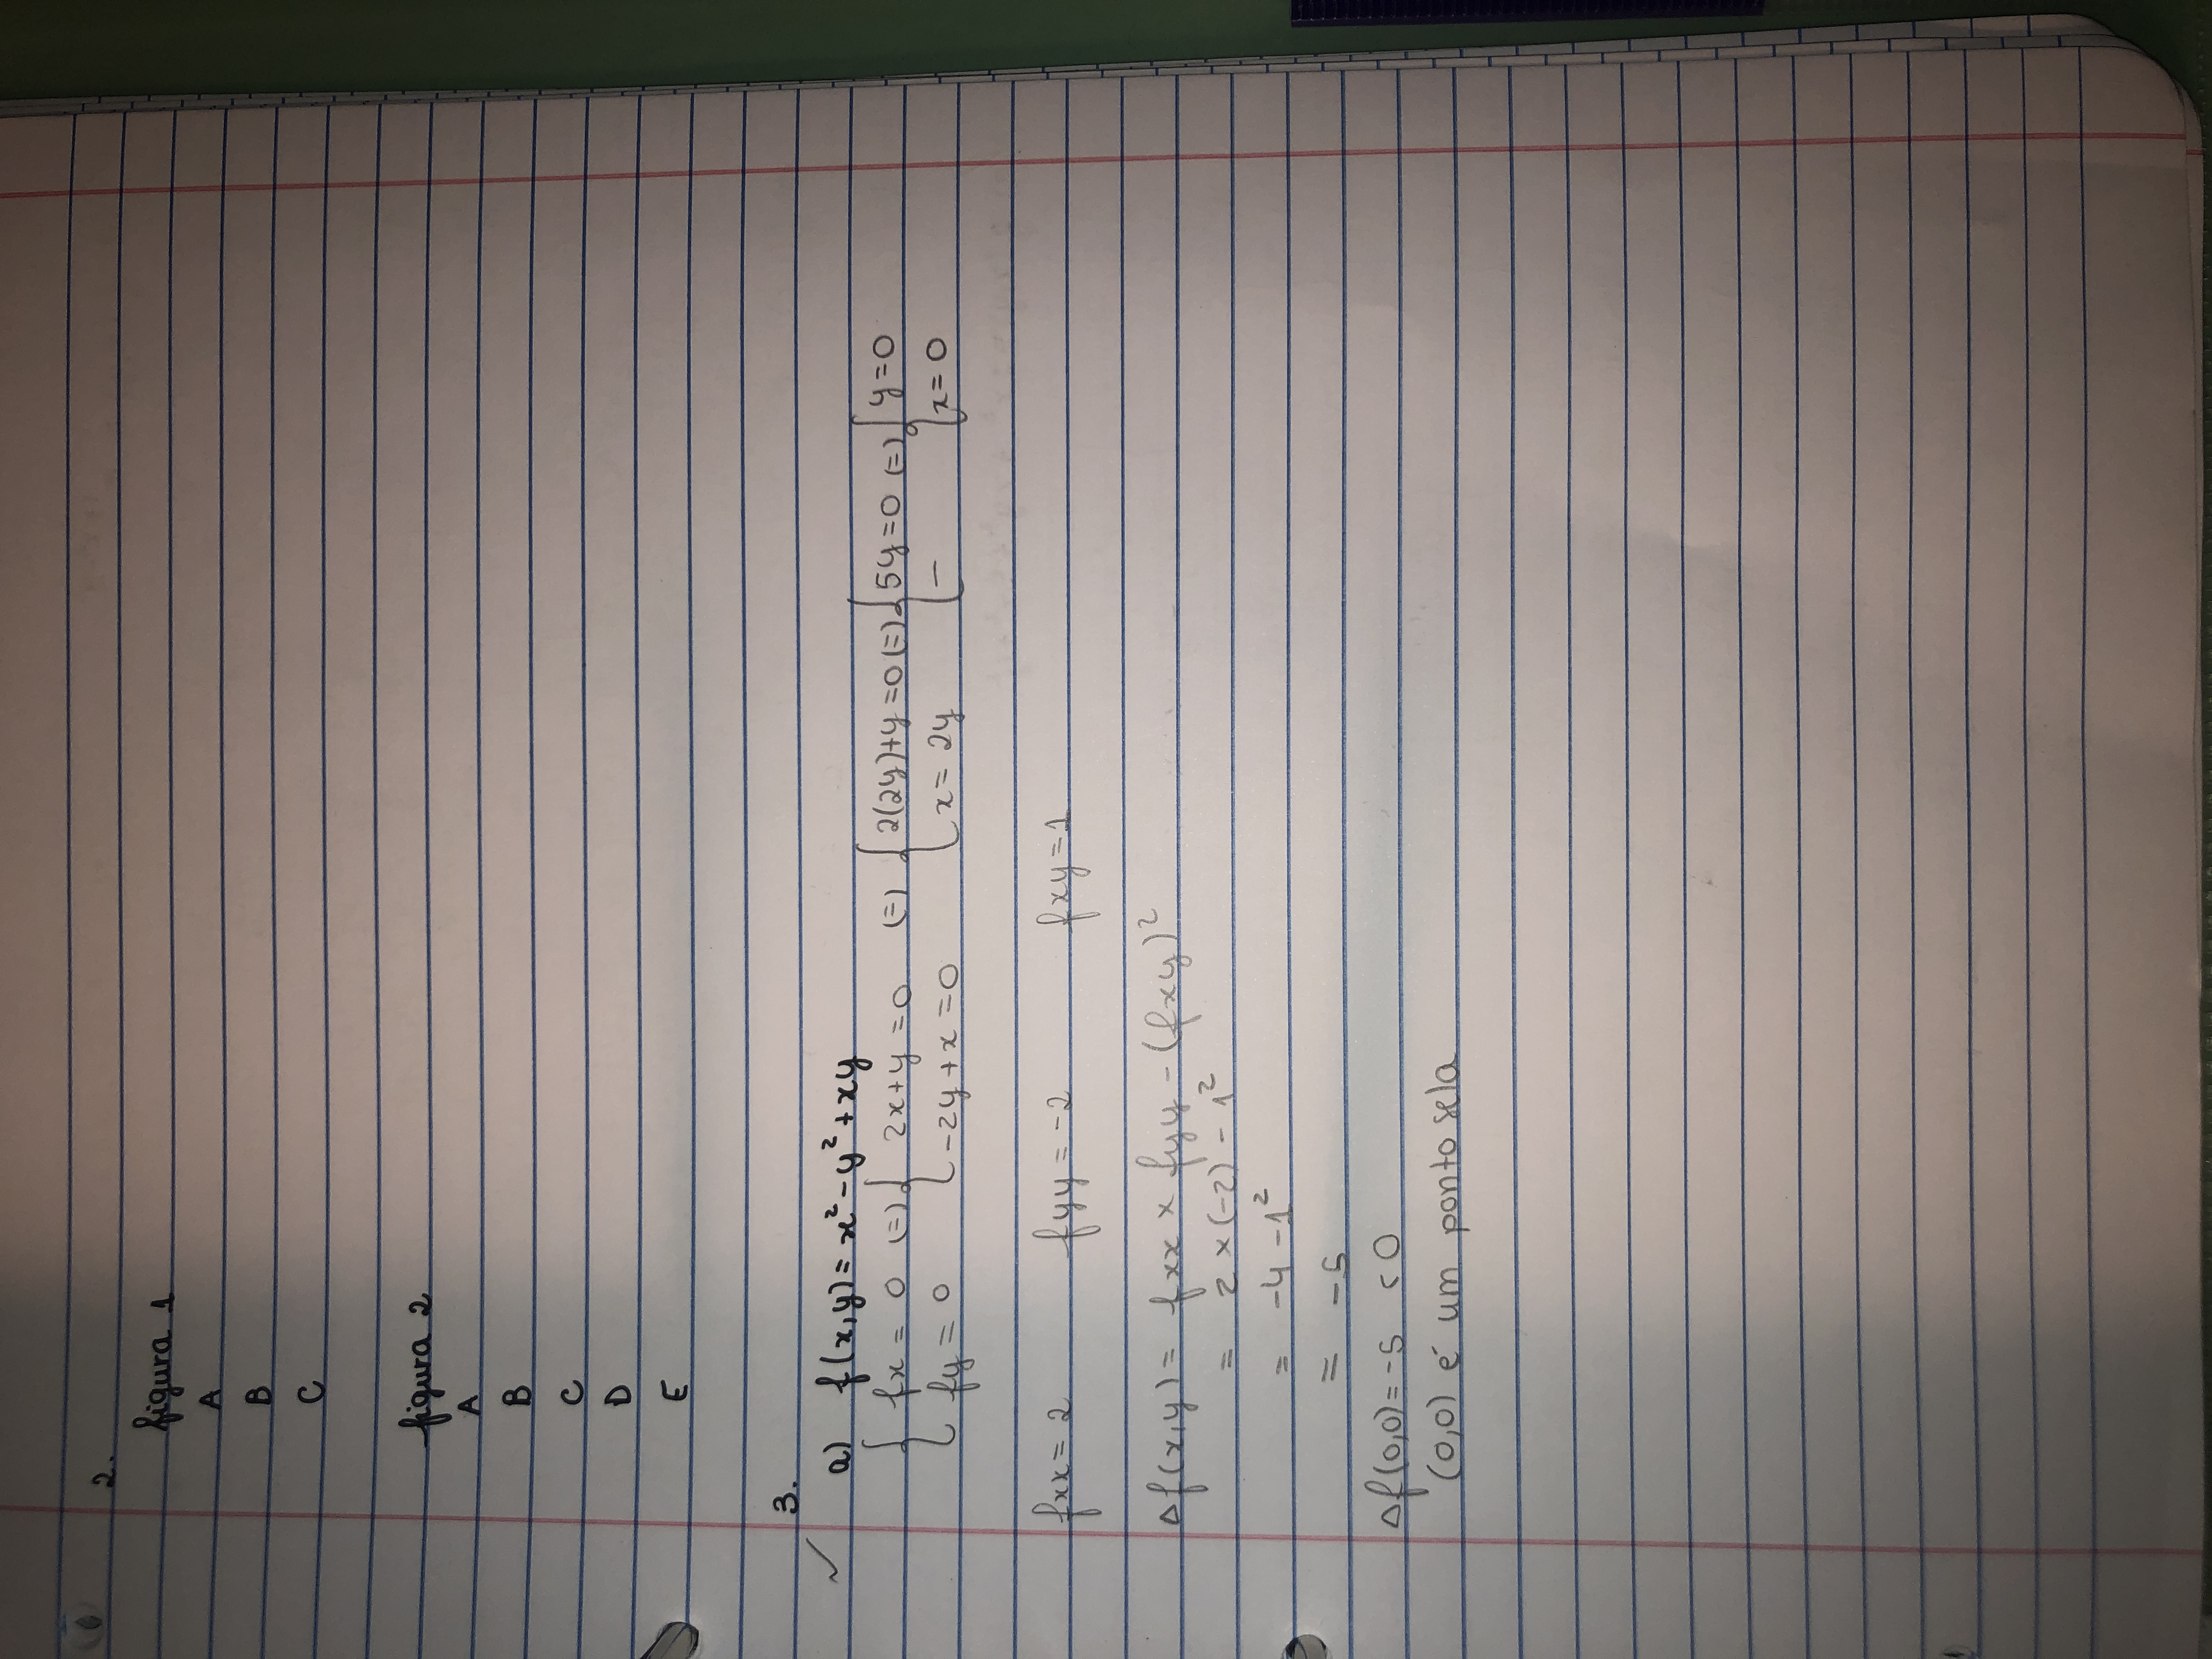 2.
figura 1
A
B
C
figura 2
A
B
C
D
E
3.
✓ a) f(x,y)= x² - y² + xy
{ fx = 0 (=) { 2x+y = 0 (=) { 2(2y)+y = 0 (=) { 5y = 0 (=) { y = 0
{ fy = 0 { -2y + x = 0 { x = 2y { — { x = 0
fxx = 2 fyy = -2 fxy = 1
Δf(x,y) = fxx × fyy - (fxy)²
= 2 × (-2) - 1²
= -4 - 1²
= -5
Δf(0,0) = -5 < 0
(0,0) é um ponto sela